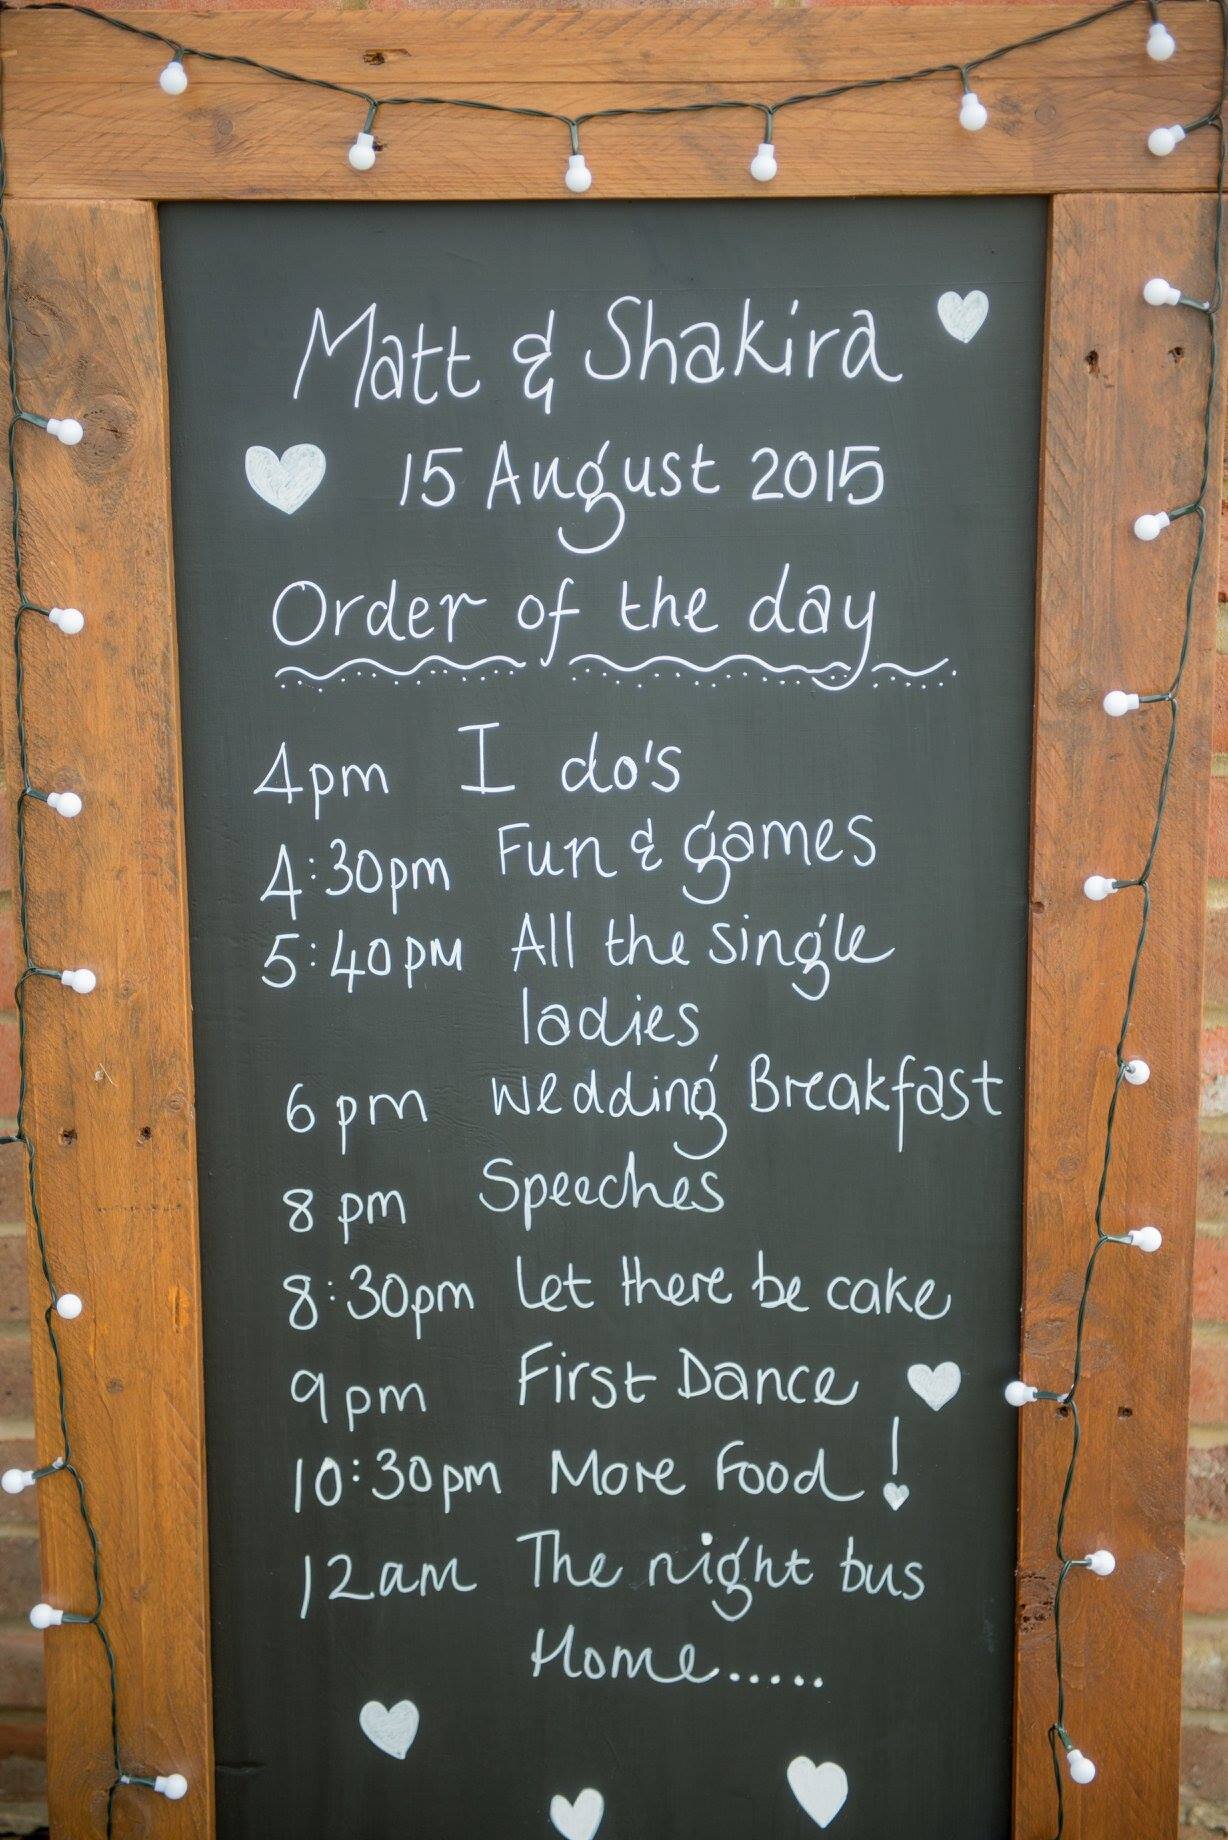 Matt & Shakira
15 August 2015
Order of the day
4pm I do's
4:30pm Fun & games
5:40PM All the single
ladies
6pm wedding Breakfast
8pm Speeches
8:30pm Let there be cake
9pm First Dance
10:30pm More Food !
12am The night bus
Home.....